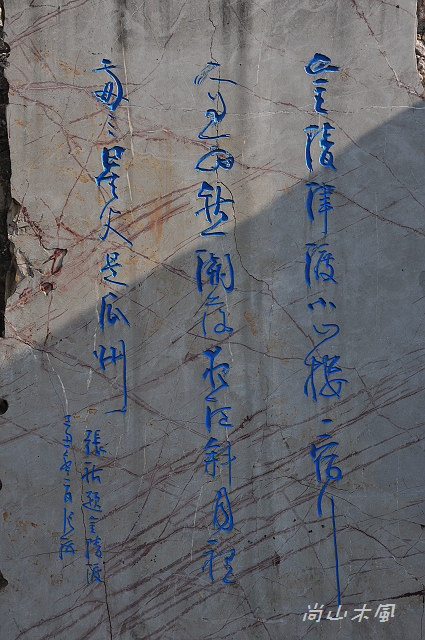 金陵津渡小山樓一宿行
人自可愁潮落夜江斜月裡
兩三星火是瓜州
張祜題金陵渡
尚山木風